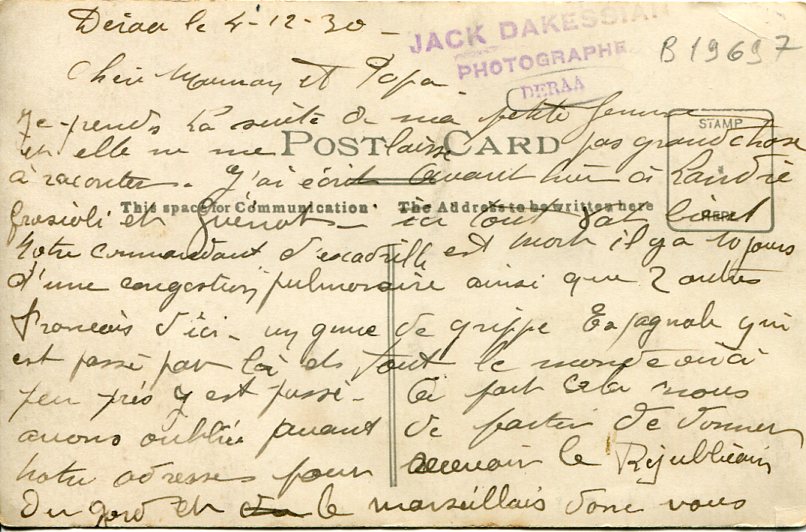 Deraa le 4-12-30 -
JACK DAKESSIAN
PHOTOGRAPHE
DERAA
B19697
Chère Maman et Papa -
Je prends la suite de ma petite femme
et elle ne me laisse pas grand chose
POST CARD
STAMP
HERE
à raconter - J'ai écrit avant hier à
This space for Communication
The Address to be written here
et Guénot - ici tout va bien
Notre commandant d'escadrille est mort il y a 10 jours
d'une congestion pulmonaire ainsi que 2 autres
Français d'ici - un genre de grippe Espagnole qui
est passé par là et tout le monde ou à
peu près y est passé - à part cela nous
avons oublié avant de partir de donner
notre adresse pour recevoir le Républicain
du gard et le marseillais donc vous